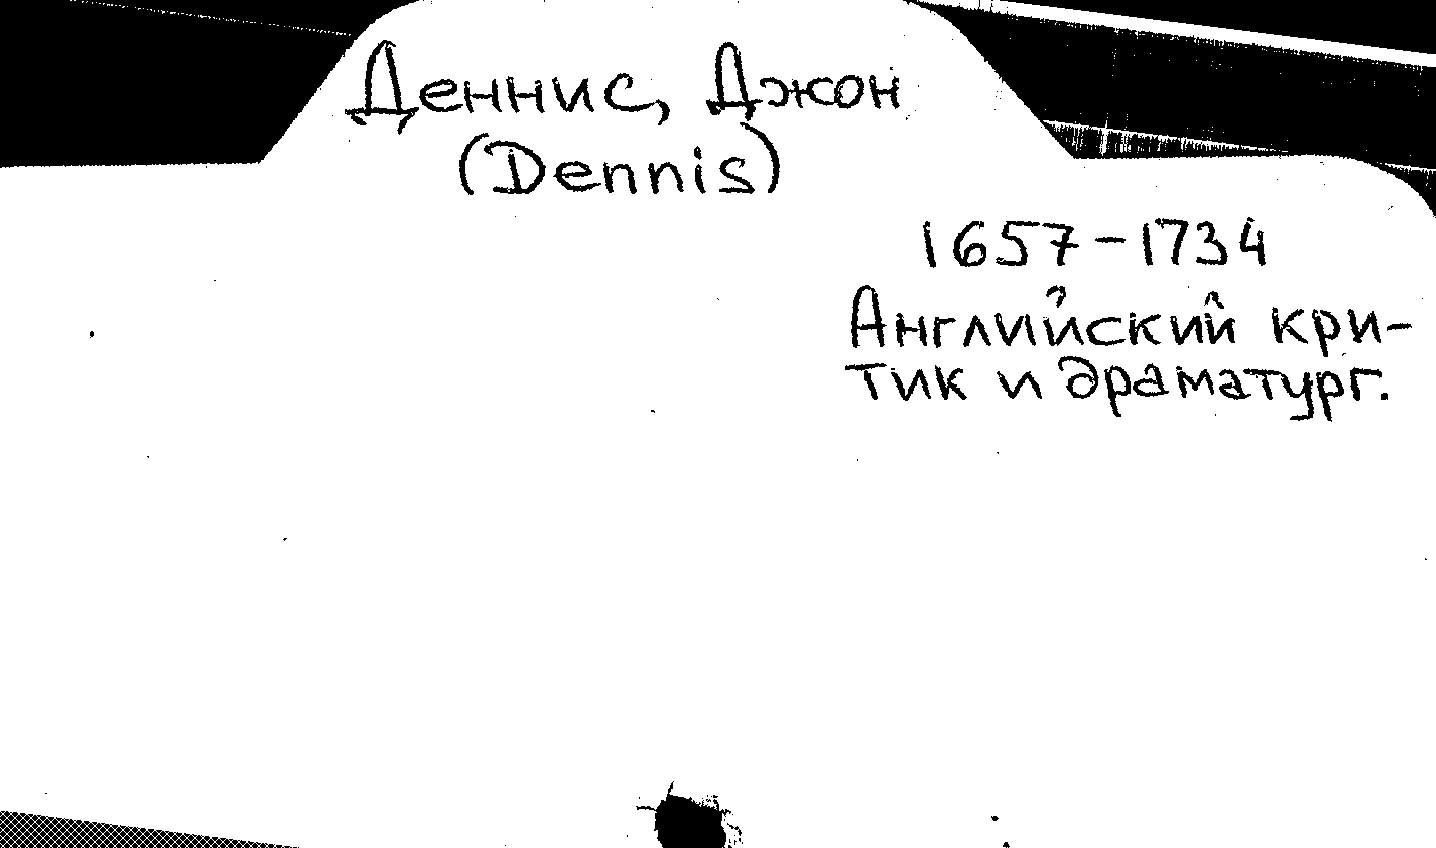 Деннис, Джон
(Dennis)
1657-1734
Английский кри-
тик и драматург.